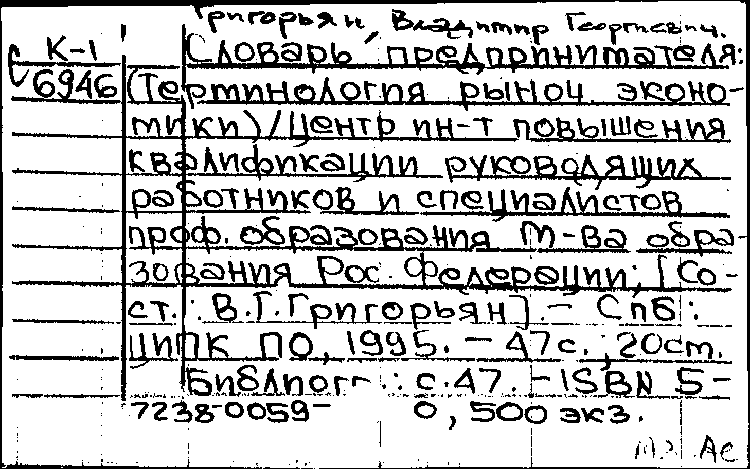 Григорьян, Владимир Георгиевич.
К-1 Словарь предпринимателя:
6946 (Терминология рыноч. эконо-
мики)/Центр ин-т повышения
квалификации руководящих
работников и специалистов
проф. образования М-ва обра-
зования Рос. Федерации; [Со-
ст.: В.Г.Григорьян]. – Спб:
ЦИПК ПО, 1995. – 47с.; 20см.
Библиогр.: с.47. – ISBN 5-
7238-0059-0, 500 экз.
Ас